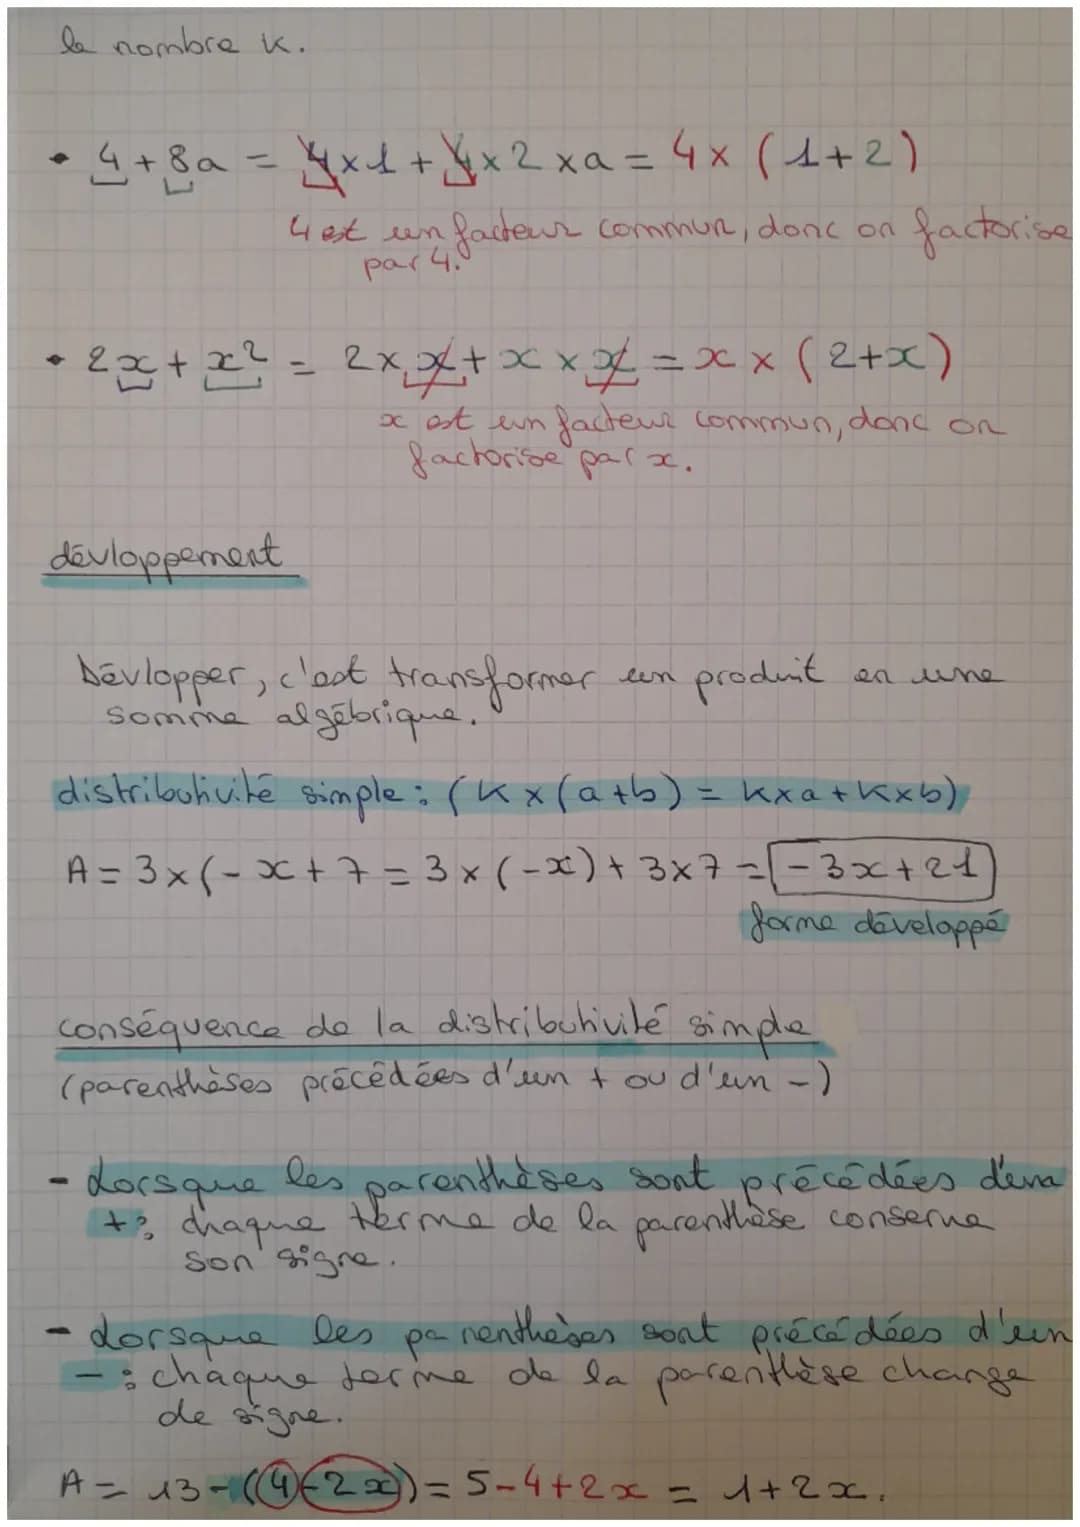 le nombre k.
• 4 + 8a = 4x1 + 4x2 xa = 4x (1+2)
4 est un facteur commun, donc on factorise
par 4.
• 2x + x² = 2x x + x x x = x x (2+x)
x est un facteur commun, donc on
factorise par x.
dévloppement
Dévlopper, c'est transformer un produit en une
somme algébrique.
distributivité simple : (k x (a+b) = kxa + kxb)
A = 3x(-x+7 = 3x(-x) + 3x7 = -3x+21
forme développé
conséquence de la distributivité simple
(parenthèses précédées d'un + ou d'un -)
- Lorsque les parenthèses sont précédées d'un
+ : chaque terme de la parenthèse conserve
son signe.
- Lorsque les parenthèses sont précédées d'un
- : chaque terme de la parenthèse change
de signe.
A = 13-(4-2x) = 5-4+2x = 1+2x.